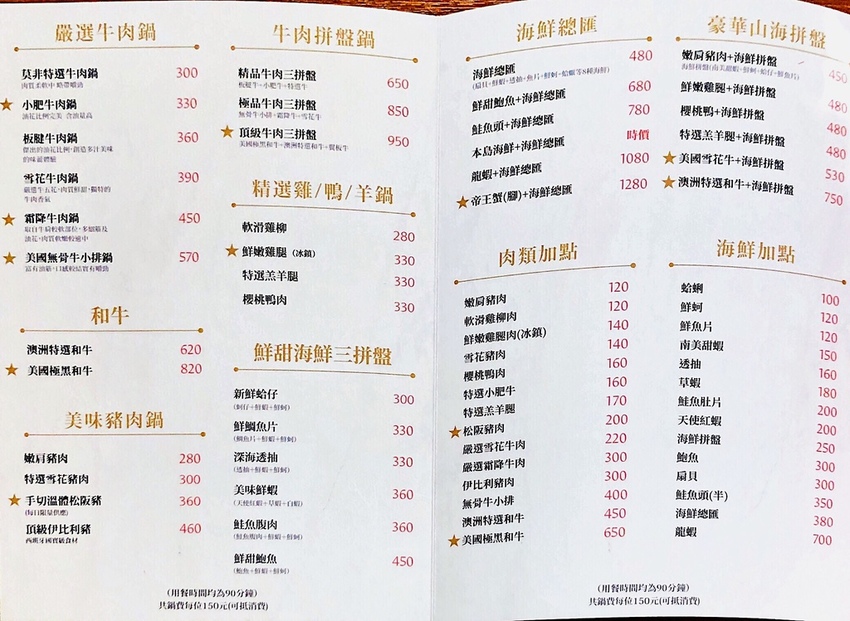 嚴選牛肉鍋
莫非特選牛肉鍋 300
肉質柔軟中 略帶嚼勁
★ 小肥牛肉鍋 330
油花比例完美 含油量高
板腱牛肉鍋 360
傑出的油花比例,創造多汁美味
的味蕾體驗
雪花牛肉鍋 390
嚴選牛五花,肉質鮮甜,獨特的
牛肉香氣
★ 霜降牛肉鍋 450
取自牛肩較軟部位,多細筋及
油花,肉質軟嫩較適中
★ 美國無骨牛小排鍋 570
富有油筋,口感較結實有嚼勁
和牛
澳洲特選和牛 620
★ 美國極黑和牛 820
美味豬肉鍋
嫩肩豬肉 280
特選雪花豬肉 300
★ 手切溫體松阪豬 360
(每日限量供應)
頂級伊比利豬 460
西班牙國寶級食材
牛肉拼盤鍋
精品牛肉三拼盤 650
板腱牛+小肥牛+特選牛
極品牛肉三拼盤 850
無骨牛小排+霜降牛+雪花牛
★ 頂級牛肉三拼盤 950
美國極黑和牛+澳洲特選和牛+翼板牛
精選雞/鴨/羊鍋
軟滑雞柳 280
★ 鮮嫩雞腿 (冰鎮) 330
特選羔羊腿 330
櫻桃鴨肉 330
鮮甜海鮮三拼盤
新鮮蛤仔 300
(蚵仔+鮮蝦+鮮蚵)
鮮鯛魚片 330
(鯛魚片+鮮蝦+鮮蚵)
深海透抽 330
(透抽+鮮蝦+鮮蚵)
美味鮮蝦 360
(天使紅蝦+草蝦+白蝦)
鮭魚腹肉 360
(鮭魚腹肉+鮮蝦+鮮蚵)
鮮甜鮑魚 450
(鮑魚+鮮蝦+鮮蚵)
(用餐時間均為90分鐘)
共鍋費每位150元(可抵消費)
海鮮總匯
海鮮總匯 480
(扇貝+鮮蝦+透抽+魚片+鮮蚵+蛤蠣等8種海鮮)
鮮甜鮑魚+海鮮總匯 680
鮭魚頭+海鮮總匯 780
本島海鮮+海鮮總匯 時價
龍蝦+海鮮總匯 1080
★ 帝王蟹(腳)+海鮮總匯 1280
豪華山海拼盤
嫩肩豬肉+海鮮拼盤 450
海鮮拼盤(南美甜蝦+鮮蚵+蛤仔+鮮魚片)
鮮嫩雞腿+海鮮拼盤 480
櫻桃鴨+海鮮拼盤 480
特選羔羊腿+海鮮拼盤 480
★ 美國雪花牛+海鮮拼盤 530
★ 澳洲特選和牛+海鮮拼盤 750
肉類加點
嫩肩豬肉 120
軟滑雞柳肉 120
鮮嫩雞腿肉(冰鎮) 140
雪花豬肉 140
櫻桃鴨肉 160
特選小肥牛 160
特選羔羊腿 170
★ 松阪豬肉 200
嚴選雪花牛肉 220
嚴選霜降牛肉 300
伊比利豬肉 300
無骨牛小排 400
澳洲特選和牛 450
★ 美國極黑和牛 650
海鮮加點
蛤蜊 100
鮮蚵 120
鮮魚片 120
南美甜蝦 150
透抽 160
草蝦 180
鮭魚肚片 200
天使紅蝦 200
海鮮拼盤 250
鮑魚 300
扇貝 300
鮭魚頭(半) 350
海鮮總匯 380
龍蝦 700
(用餐時間均為90分鐘)
共鍋費每位150元(可抵消費)